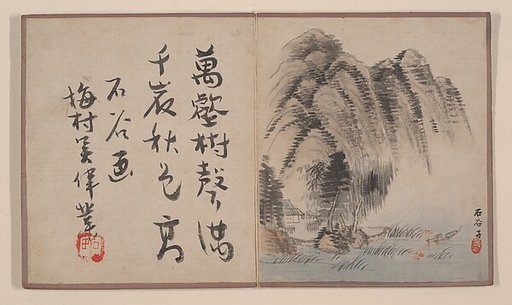 石谷子
萬壑樹聲滿
千崖秋色高
石谷画
梅村吳偉業